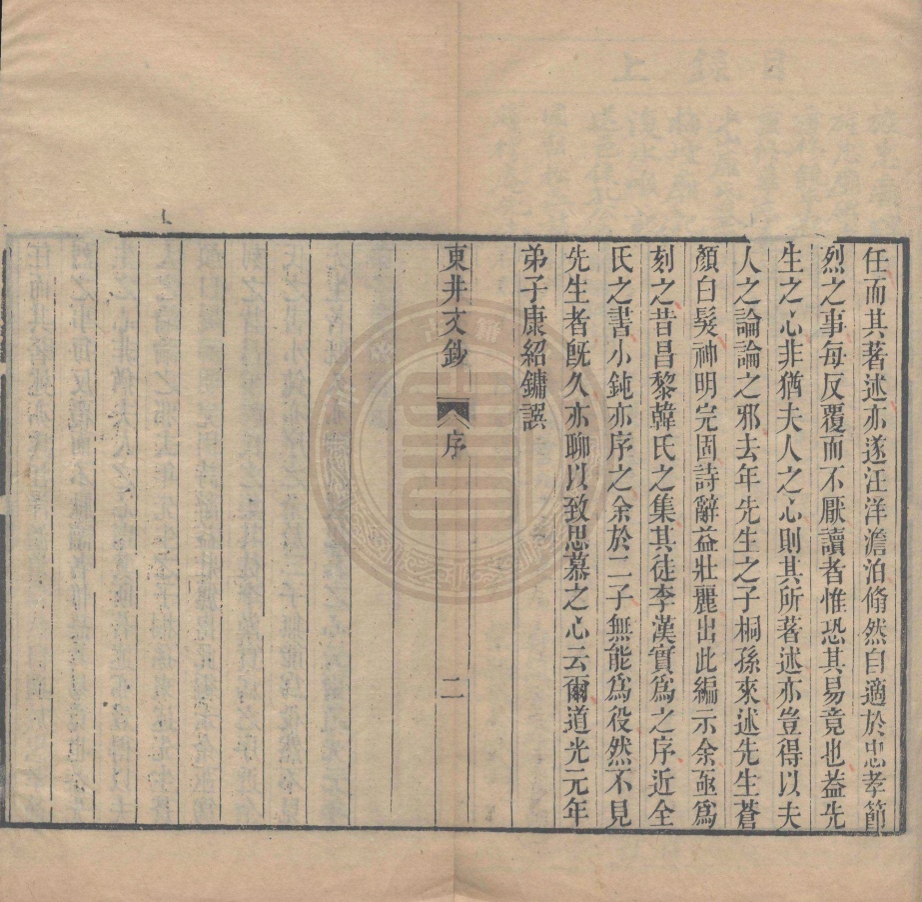 任而其著述亦遂汪洋澹泊脩然自適於忠孝節
烈之事每反覆而不厭讀者惟恐其易竟也葢先
生之心非猶夫人之心則其所著述亦豈得以夫
人之論論之邪去年先生之子桐孫來述先生蒼
顏白髮神明完固詩辭益壯麗出此編示余亟爲
刻之昔昌黎韓氏之集其徒李漢實爲之序近全
氏之書小鈍亦序之余於二子無能爲役然不見
先生者旣久亦聊以致思慕之心云爾道光元年
弟子康紹鏞譔
東井文鈔 序 二